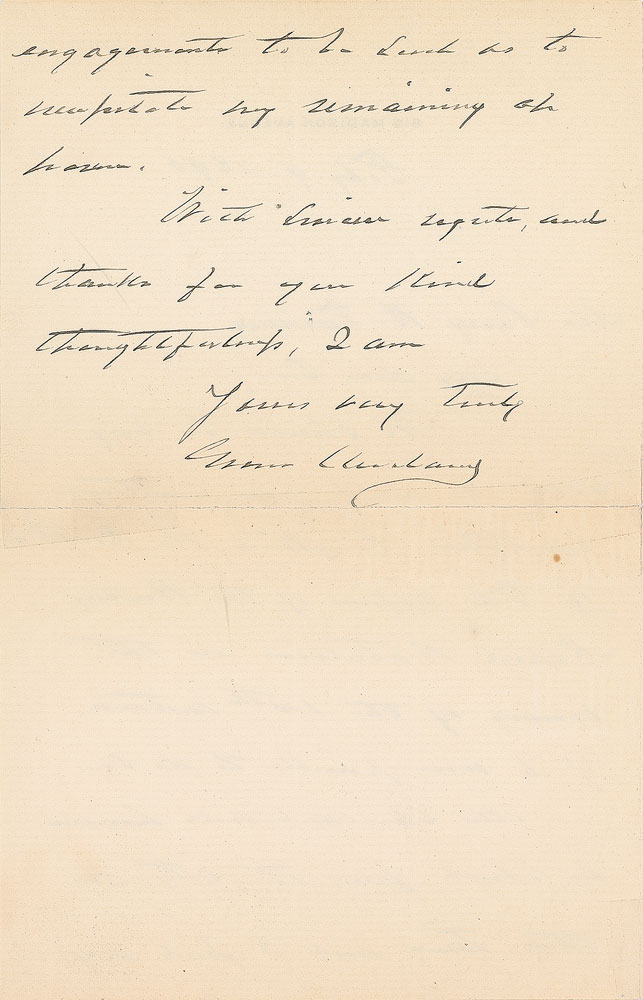 engagements to be such as to
necessitate my remaining at
home.
With sincere regrets, and
thanks for your kind
thoughtfulness, I am
Yours very truly
Grover Cleveland